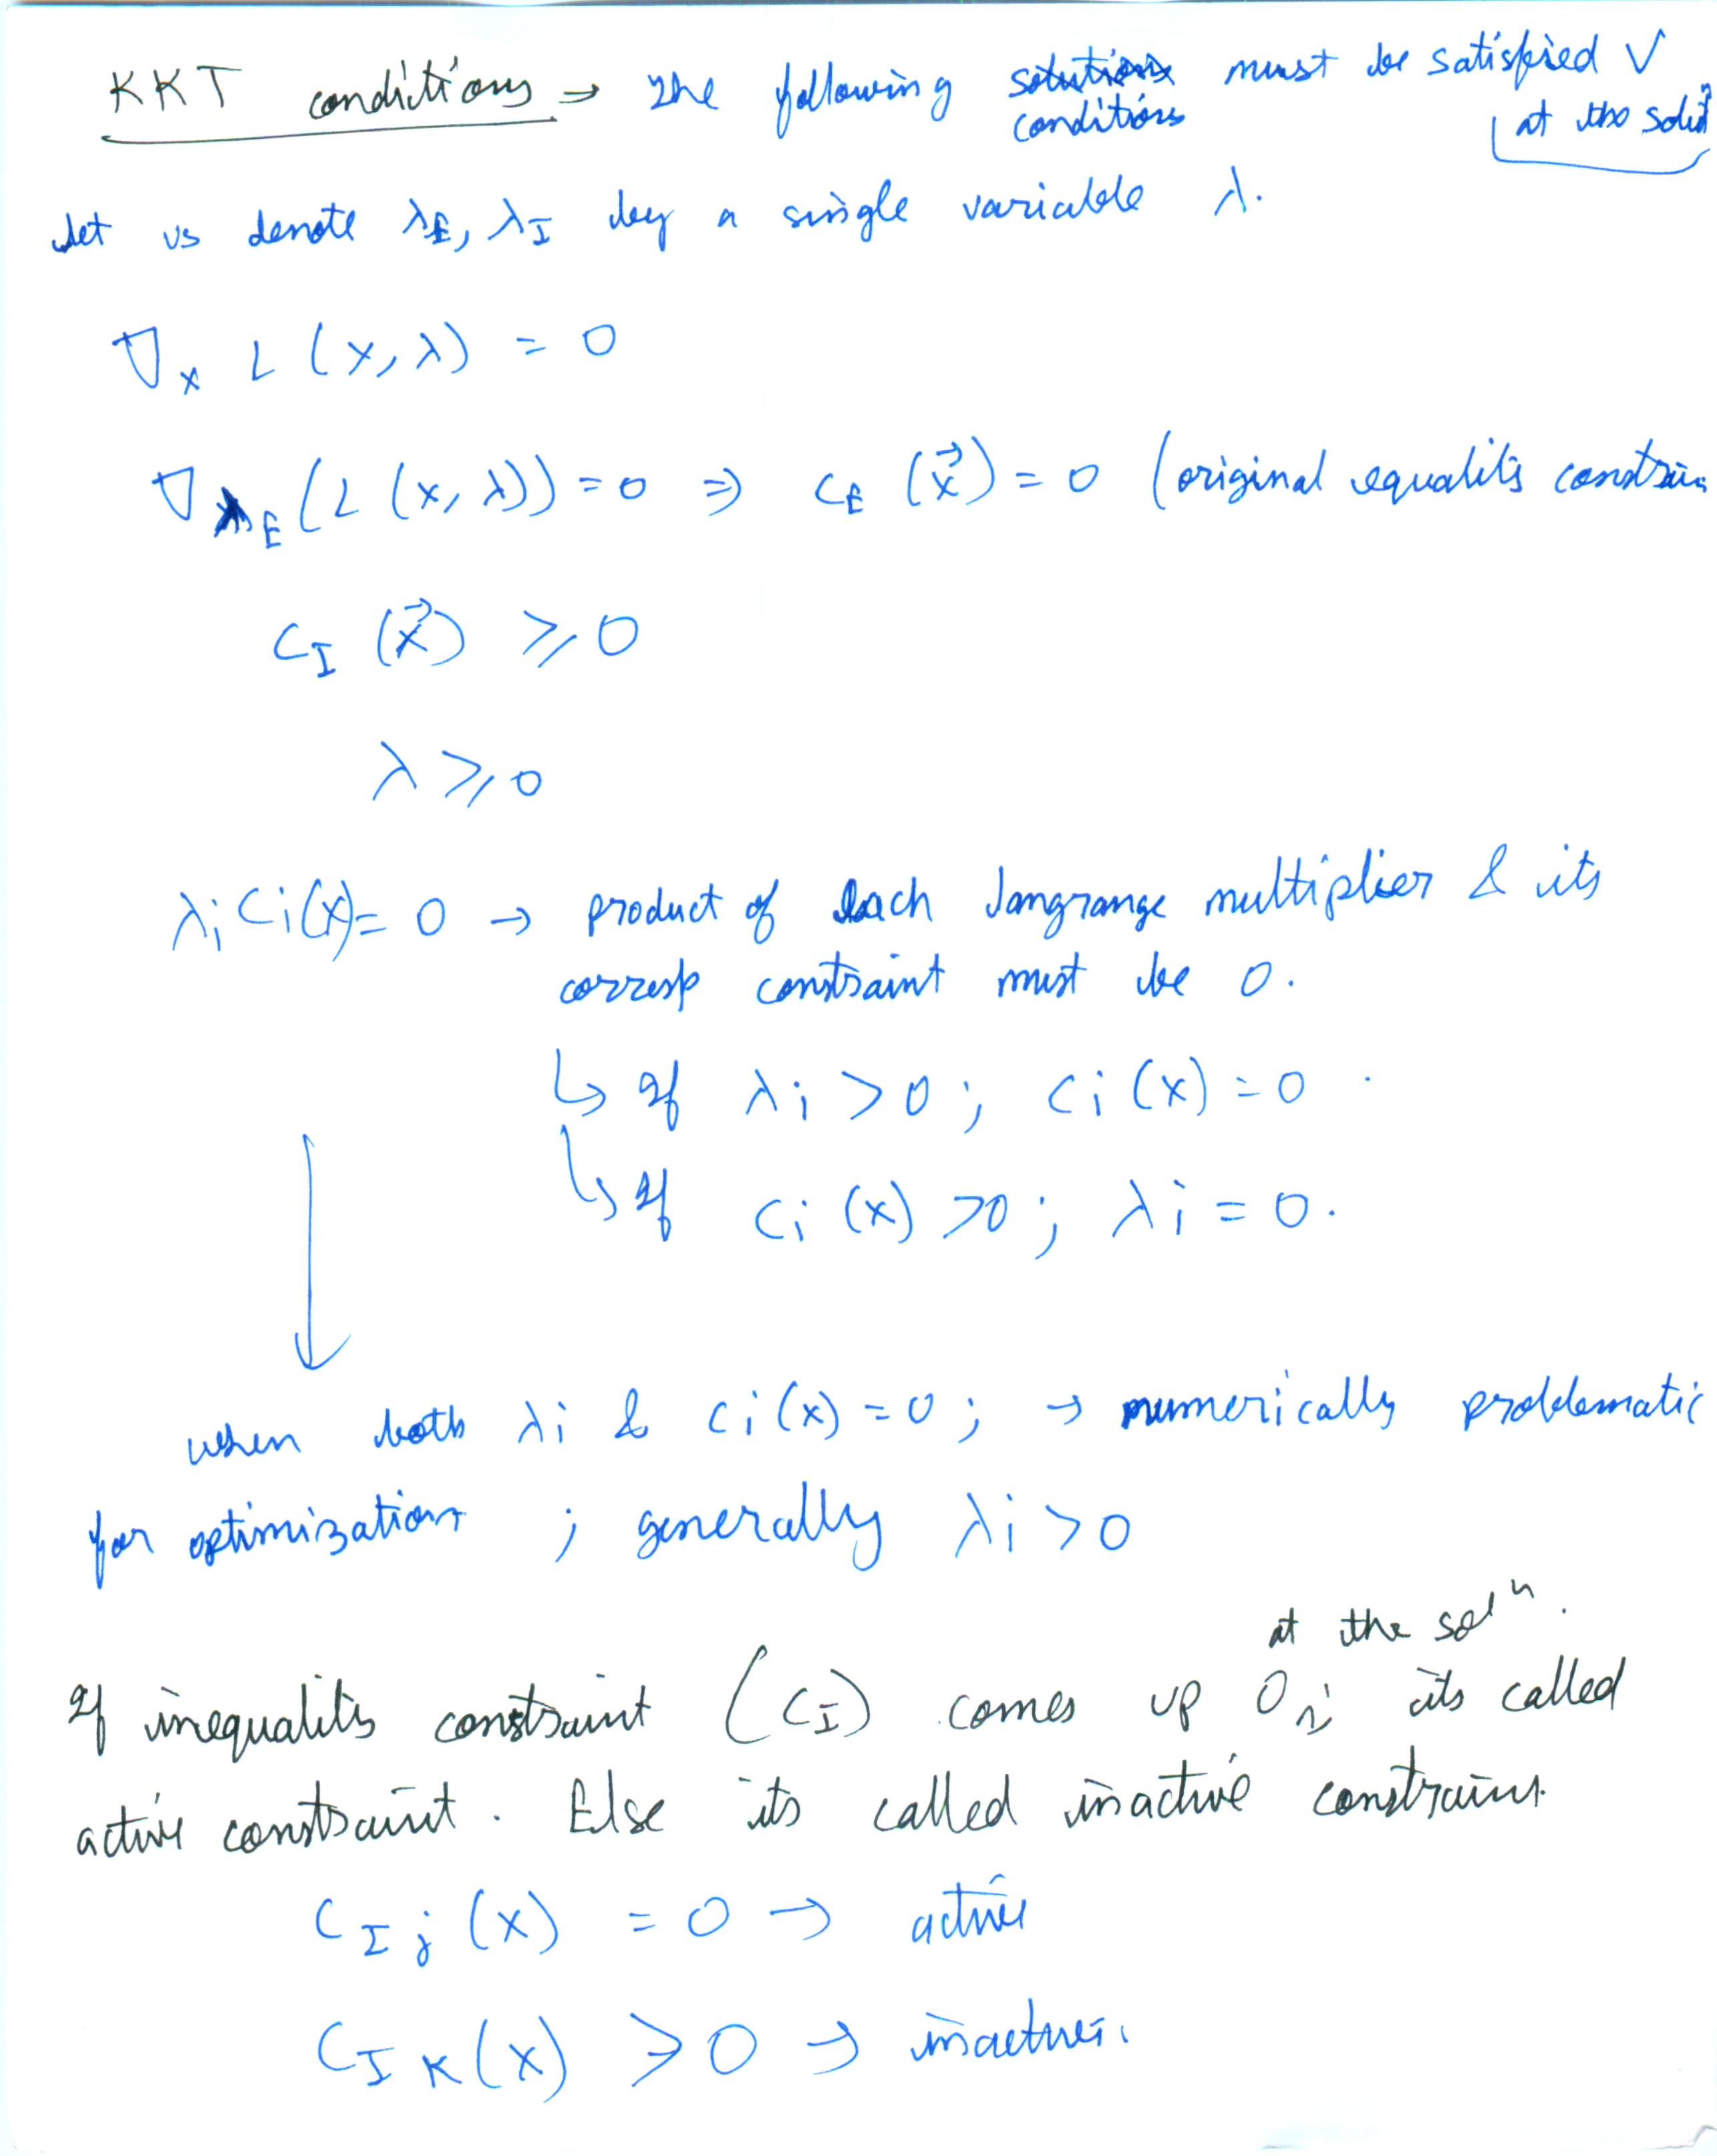 KKT conditions → The following solutions must be satisfied V
conditions
at the solⁿ
Let us denote λE, λI by a single variable λ.
∇x L (x, λ) = 0
∇λE (L (x, λ)) = 0 ⇒ cE (x⃗) = 0 (original equality constrain
cI (x⃗) ≥ 0
λ ≥ 0
λi ci(x) = 0 → product of each langrange multiplier & its
corresp constraint must be 0.
↳ If λi > 0 ; ci (x) = 0 .
↳ If ci (x) > 0 ; λi = 0 .
when both λi & ci(x) = 0 ; → numerically problematic
for optimization ; generally λi > 0
at the solⁿ .
If inequality constraint (cI) comes up 0 ; its called
active constraint . Else its called inactive constraint.
cIj (x) = 0 → active
cIk (x) > 0 → inactive.